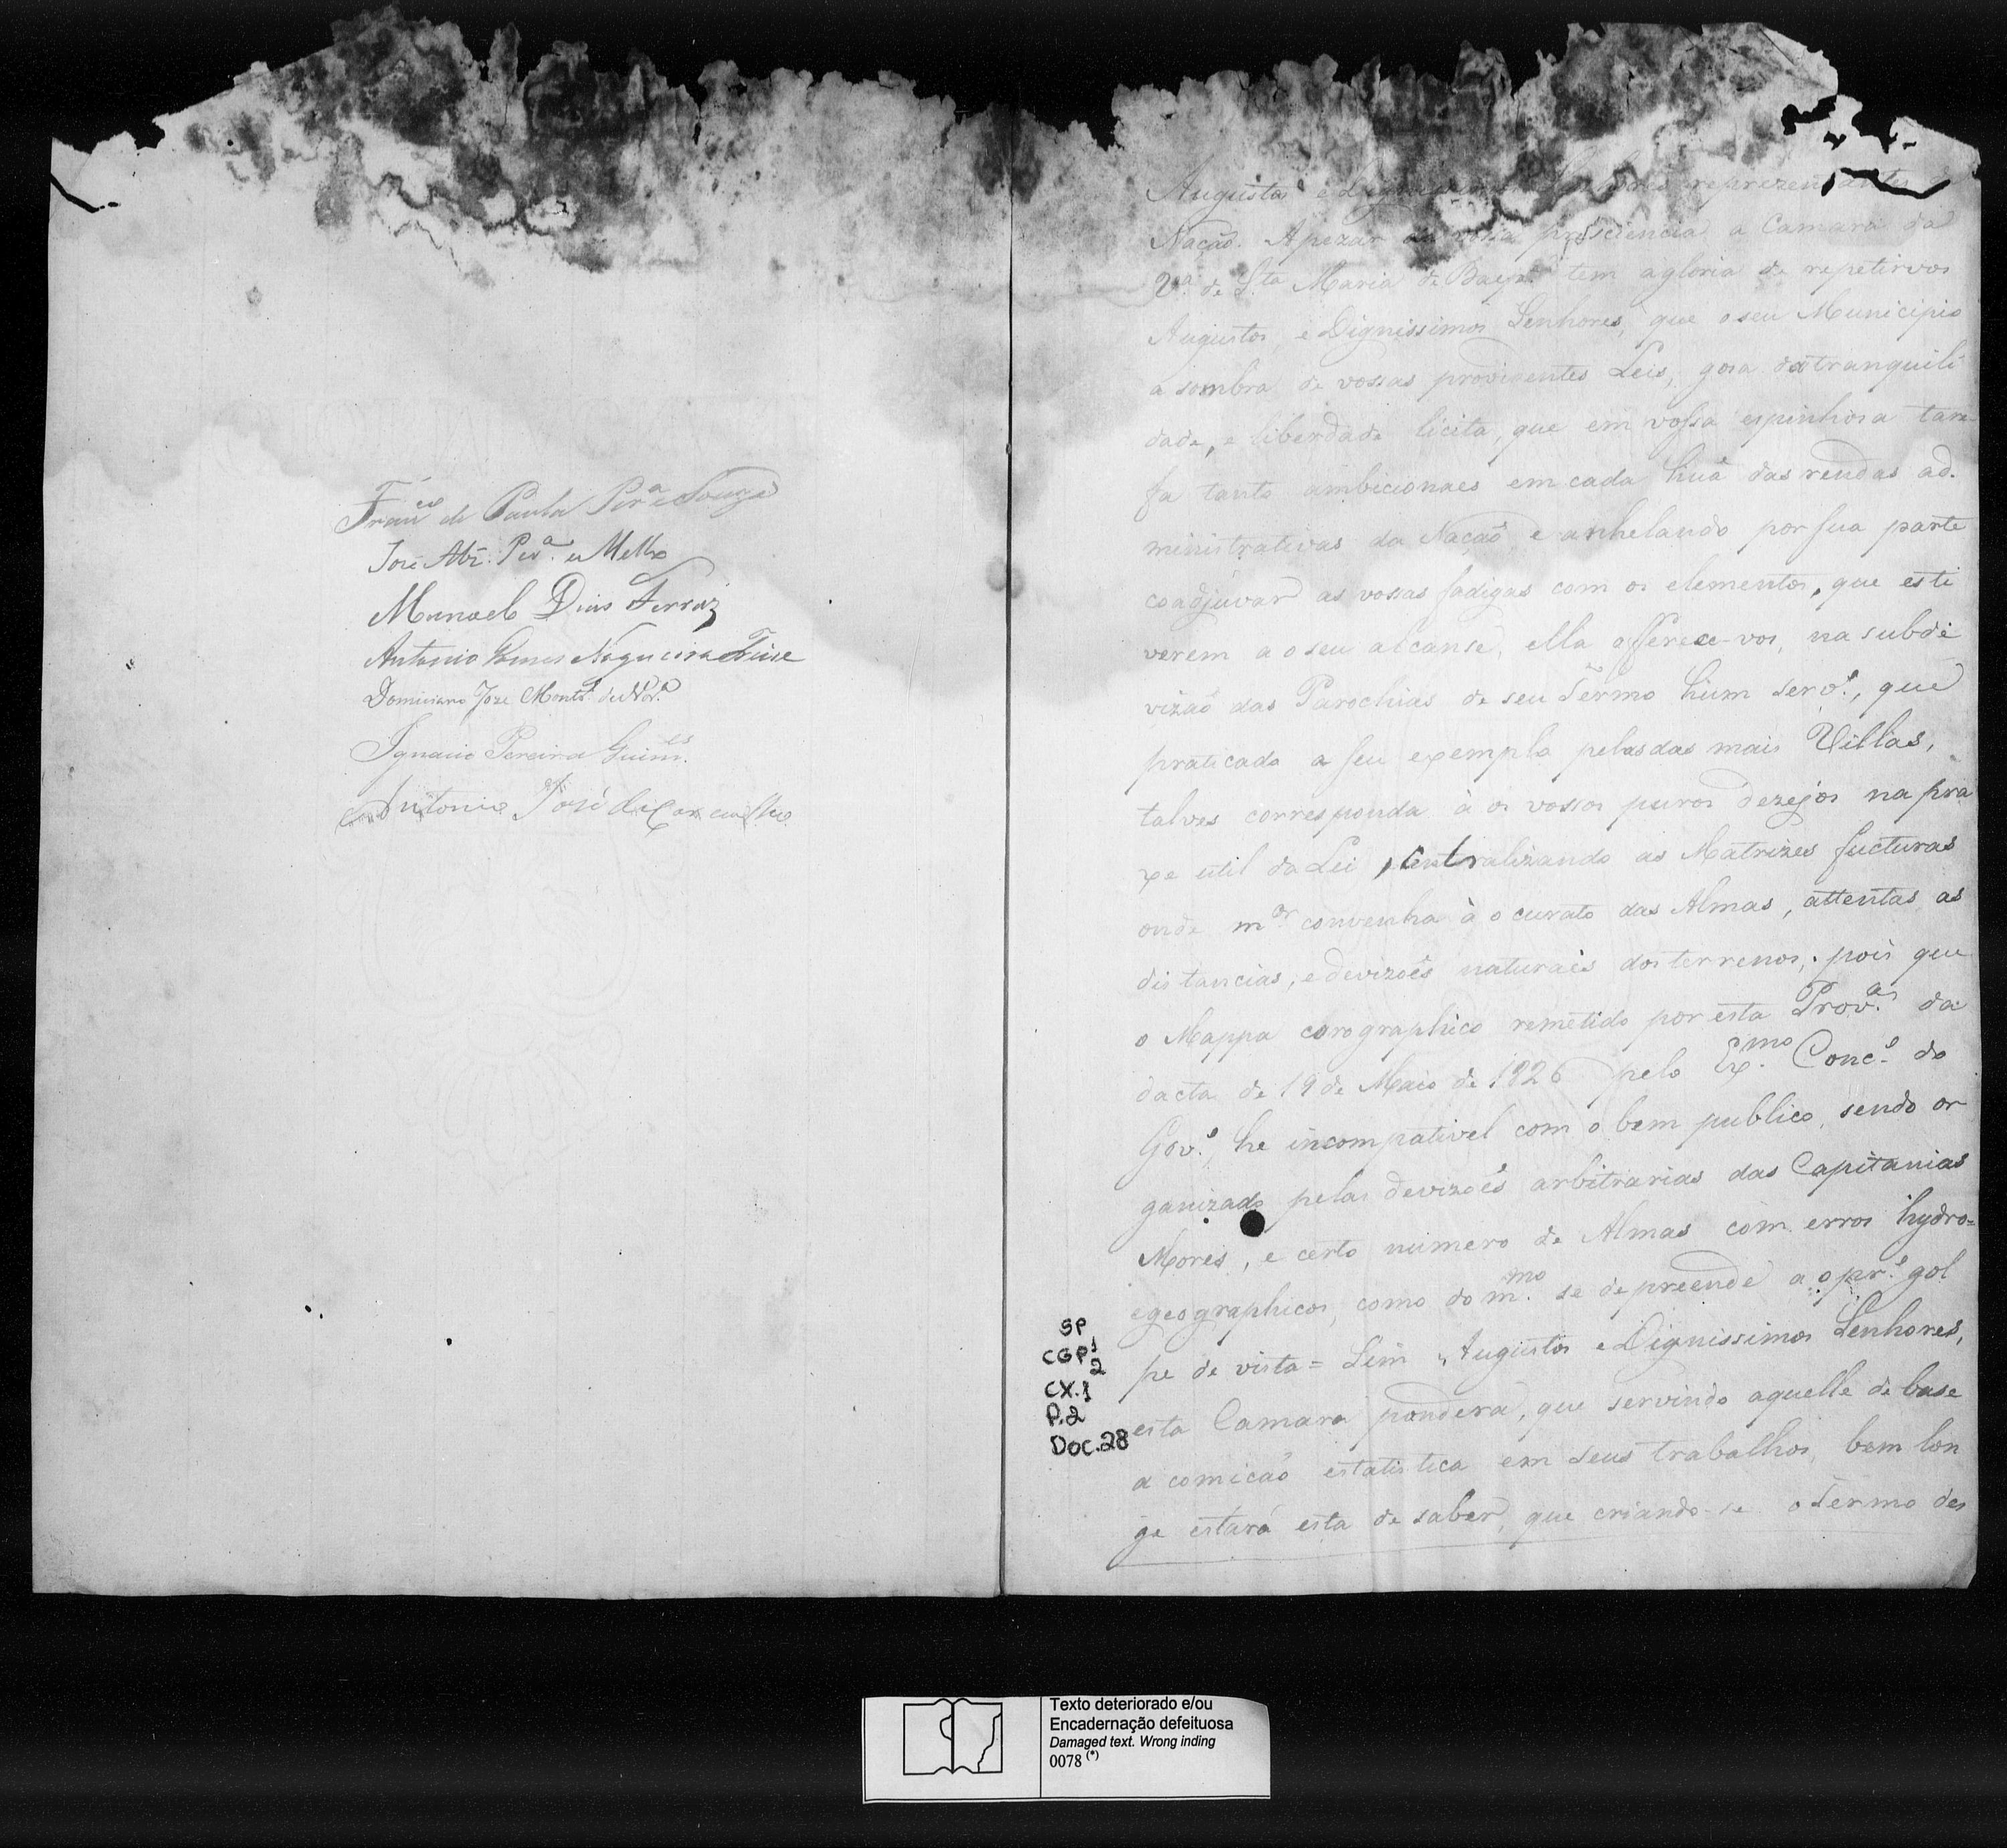 Fran.co de Paula Per.a e Souza
José Alz. Per.a e Mello
Manoel Dias Ferraz
Antonio Gomes Nogueira Freire
Domiciano Joze Montr.o de Nor.a
Ignacio Pereira Guim.es
Antonio José de
Augustos e reprezentantes
Nação. Apezar da vossa presciencia a Camara da
V.a de S.ta Maria de Baep.di tem a gloria de repetirvos
Augustos, e Dignissimos Senhores, que o seu Municipio
a sombra de vossas providentes Leis, gosa da tranquili
dade, e liberdade licita, que em vossa espinhosa tare-
fa tanto ambicionaes em cada huã das rendas ad-
ministrativas da Nação, e anhelando por sua parte
coadjuvar as vossas fadigas com os elementos, que esti
verem a o seu alcanse, ella offerece-vos, na subdi
vizão das Parochias de seu Termo hum serv.o, que
praticado a seu exemplo pelas das mais Villas,
talves corresponda à os vossos puros dezejos na pra
xe util da Lei, centralizando as Matrizes fucturas
onde m.or convenha à o curato das Almas, attentas as
distancias, e devizoẽs naturaes dos terrenos; pois que
o Mappa corographico remetido por esta Prov.a da
dacta de 19 de Maio de 1826 pelo Ex.mo Conc.o do
Gov.o, he incompativel com o bem publico, sendo or
ganizado pelas devizoẽs arbitrarias das Capitanias
Mores, e certo numero de Almas com erros hydro=
e geographicos, como do m.mo se depreende a o pr.o gol
pe de vista = Sim Augustos e Dignissimos Senhores,
esta Camara pondera, que servindo aquelle de base
a comicão estatistica em seus trabalhos, bem lon
ge estará esta de saber, que criando-se o Termo des
SP
CGP 1
2
CX.1
P.2
Doc.28
Texto deteriorado e/ou
Encadernação defeituosa
Damaged text. Wrong inding
0078 (*)